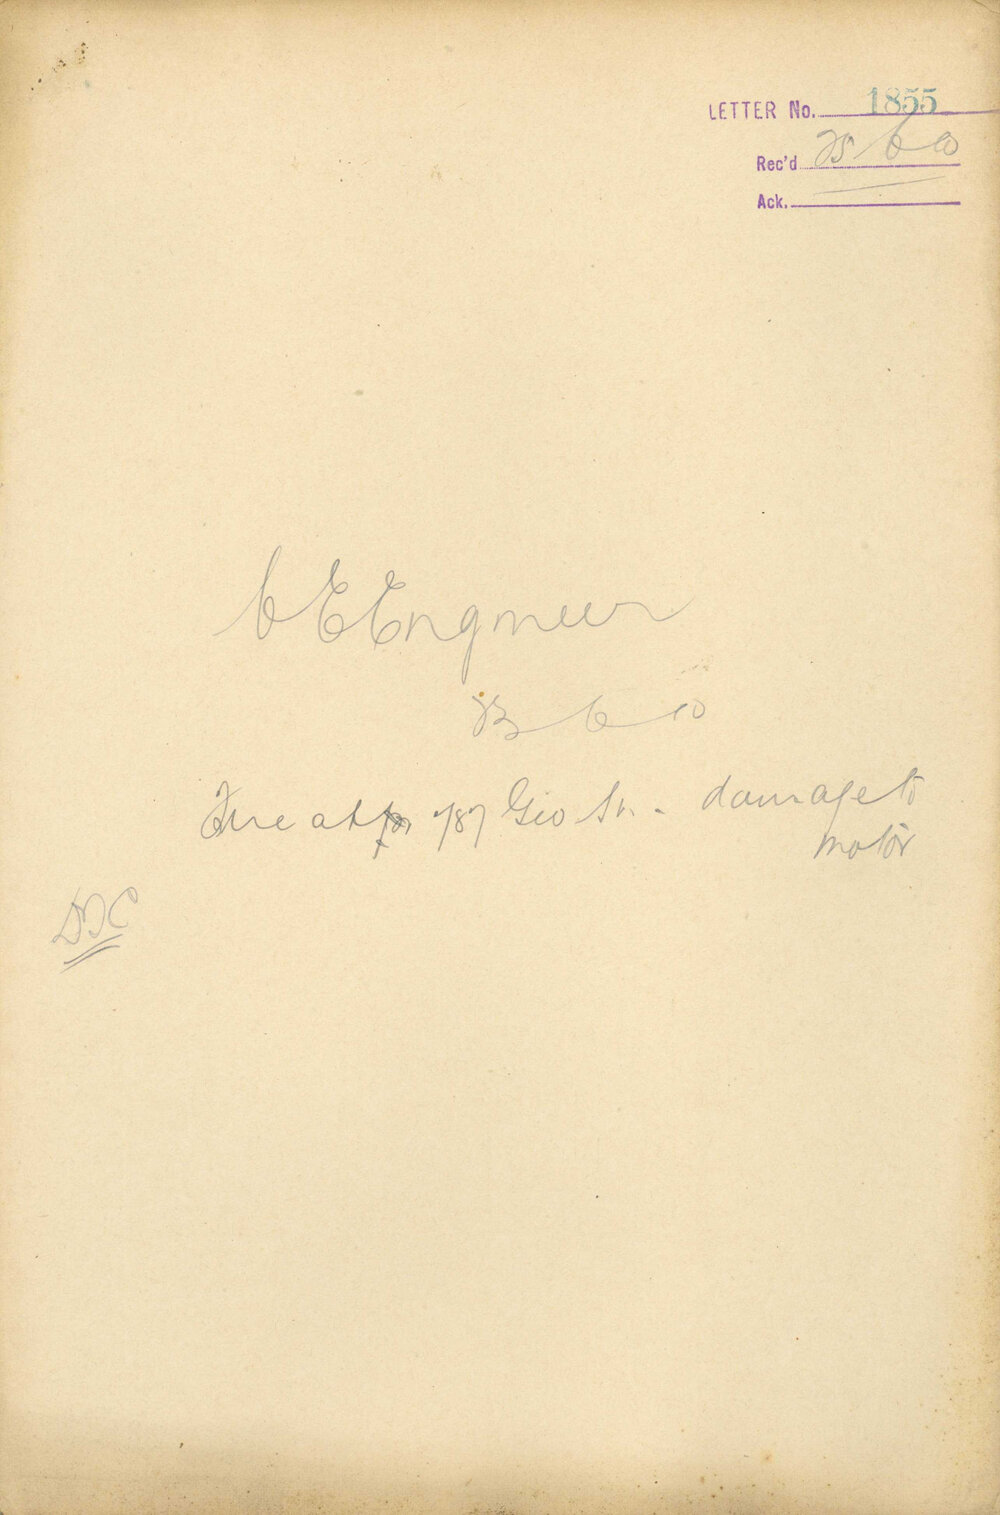 LETTER No. 1855
Rec'd 25 6 10
Ack.
C E Engineer
23 6 10
Fire at 787 Geo St. - damage to
motor